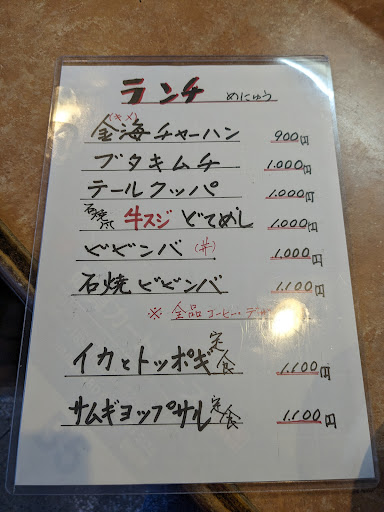 ランチ めにゅう
(キメ)
金海チャーハン 900円
ブタキムチ 1.000円
テールクッパ 1.000円
石焼 牛スジどてめし 1.000円
ビビンバ(丼) 1.000円
石焼ビビンバ 1.100円
※ 全品コーヒー・デ
イカとトッポギ定食 1.100円
サムギョップサル定食 1.100円